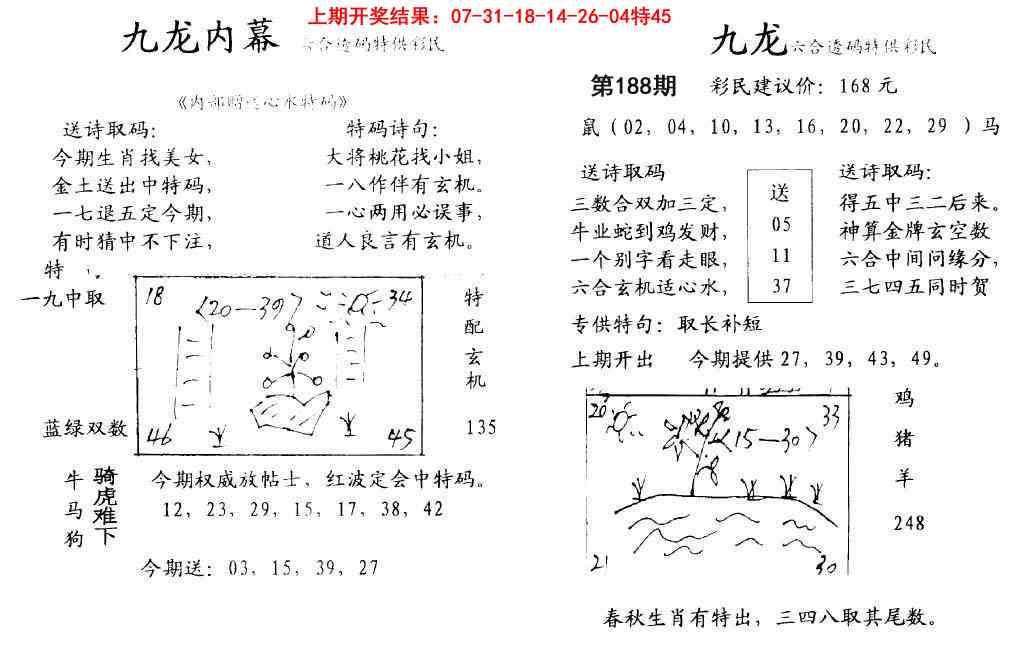 上期开奖结果：07-31-18-14-26-04特45
九龙内幕 六合透码特供彩民
《内部赠送心水特码》
送诗取码：
今期生肖找美女，
金土送出中特码，
一七退五定今期，
有时猜中不下注，
特码诗句：
大将桃花找小姐，
一八作伴有玄机。
一心两用必误事，
道人良言有玄机。
特
一九中取
蓝绿双数
18
〈20—39〉
34
46
45
特
配
玄
机
135
牛
马
狗
骑
虎
难
下
今期权威放帖士，红波定会中特码。
12，23，29，15，17，38，42
今期送：03，15，39，27
九龙 六合透码特供彩民
第188期 彩民建议价：168元
鼠（02，04，10，13，16，20，22，29 ）马
送诗取码
三数合双加三定，
牛业蛇到鸡发财，
一个别字看走眼，
六合玄机适心水，
送
05
11
37
送诗取码：
得五中三二后来。
神算金牌玄空数
六合中间问缘分，
三七四五同时贺
专供特句：取长补短
上期开出 今期提供27，39，43，49。
20
33
〈15—30〉
21
30
鸡
猪
羊
248
春秋生肖有特出，三四八取其尾数。